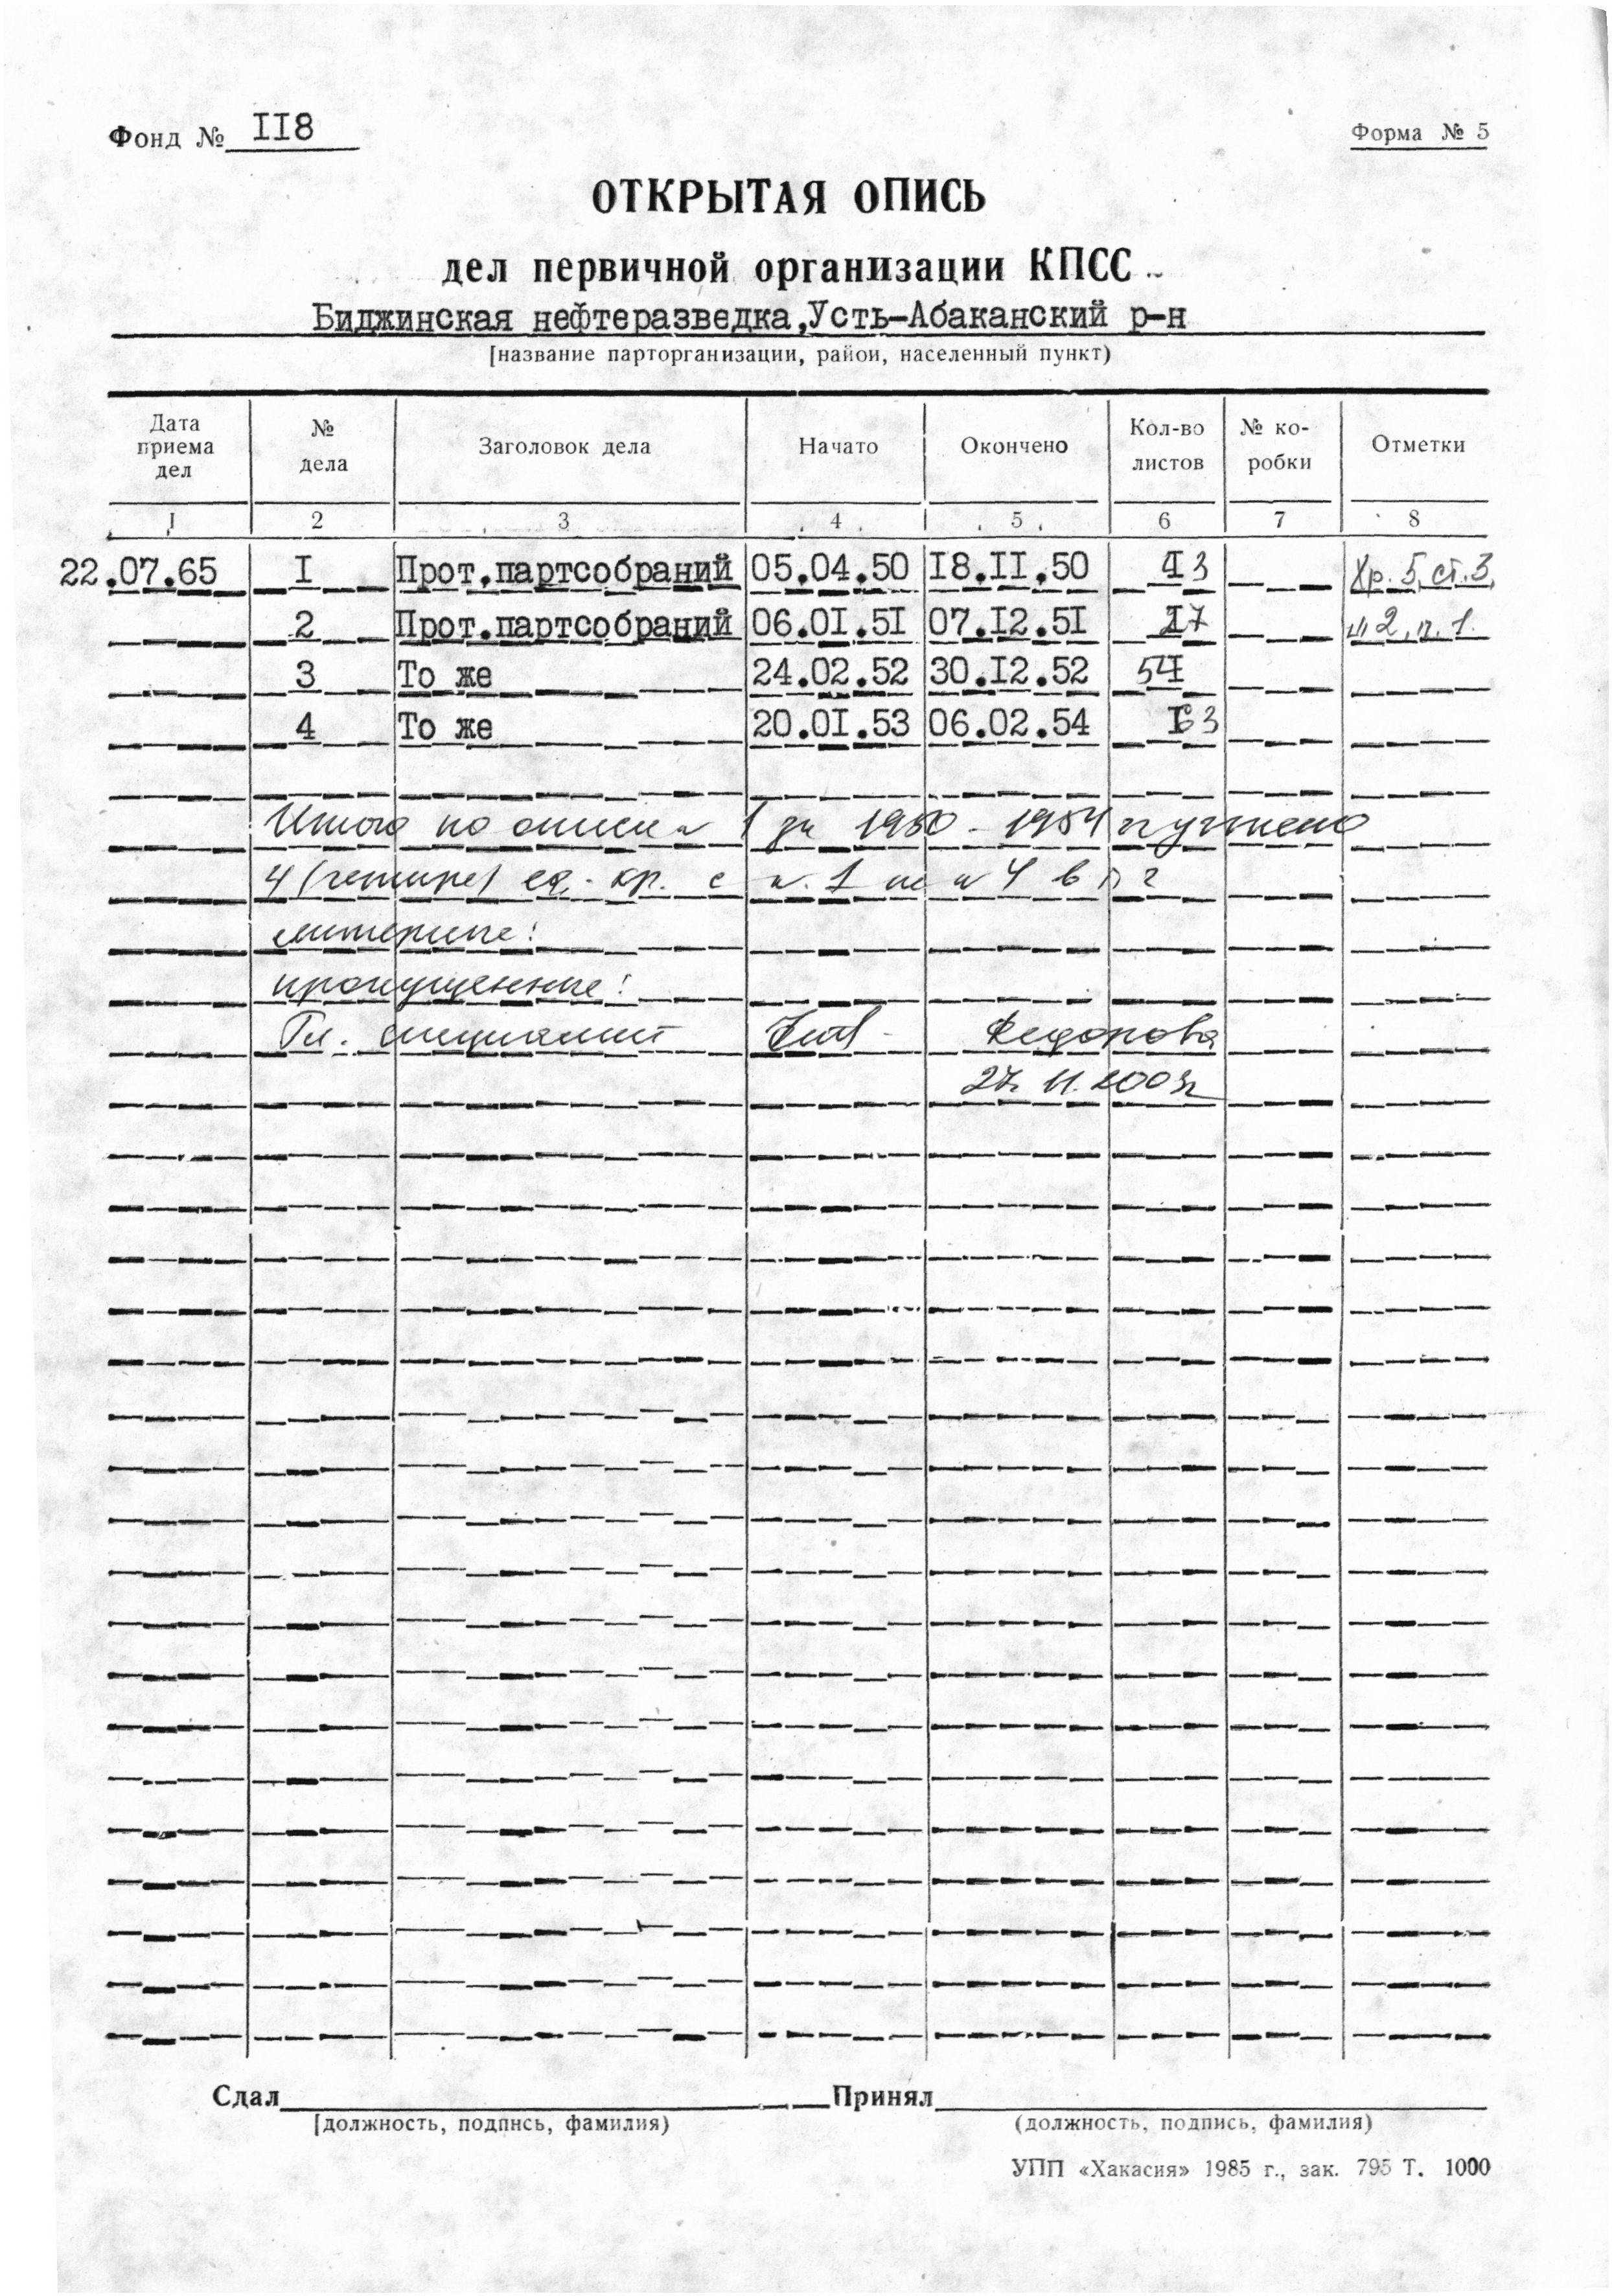 Фонд № II8
Форма № 5
ОТКРЫТАЯ ОПИСЬ
дел первичной организации КПСС
Биджинская нефтеразведка,Усть-Абаканский р-н
[название парторганизации, район, населенный пункт)
Дата приема дел № дела Заголовок дела Начато Окончено Кол-во листов № ко-робки Отметки
1 2 3 4 5 6 7 8
22.07.65 I Прот.партсобраний 05.04.50 I8.II.50 43 Хр. 5, ст. 3,
2 Прот.партсобраний 06.0I.5I 07.I2.5I 27 ш 2, п. 1.
3 То же 24.02.52 30.I2.52 54
4 То же 20.0I.53 06.02.54 63
Итого по описи № 1 за 1950 - 1954 гг учтено
4 (четыре) ед. хр. с № 1 по № 4 в т ч
литерные:
пропущенные:
Гл. специалист Федорова
27. 11. 2003г
Сдал Принял
[должность, подпись, фамилия) (должность, подпись, фамилия)
УПП «Хакасия» 1985 г., зак. 795 Т. 1000